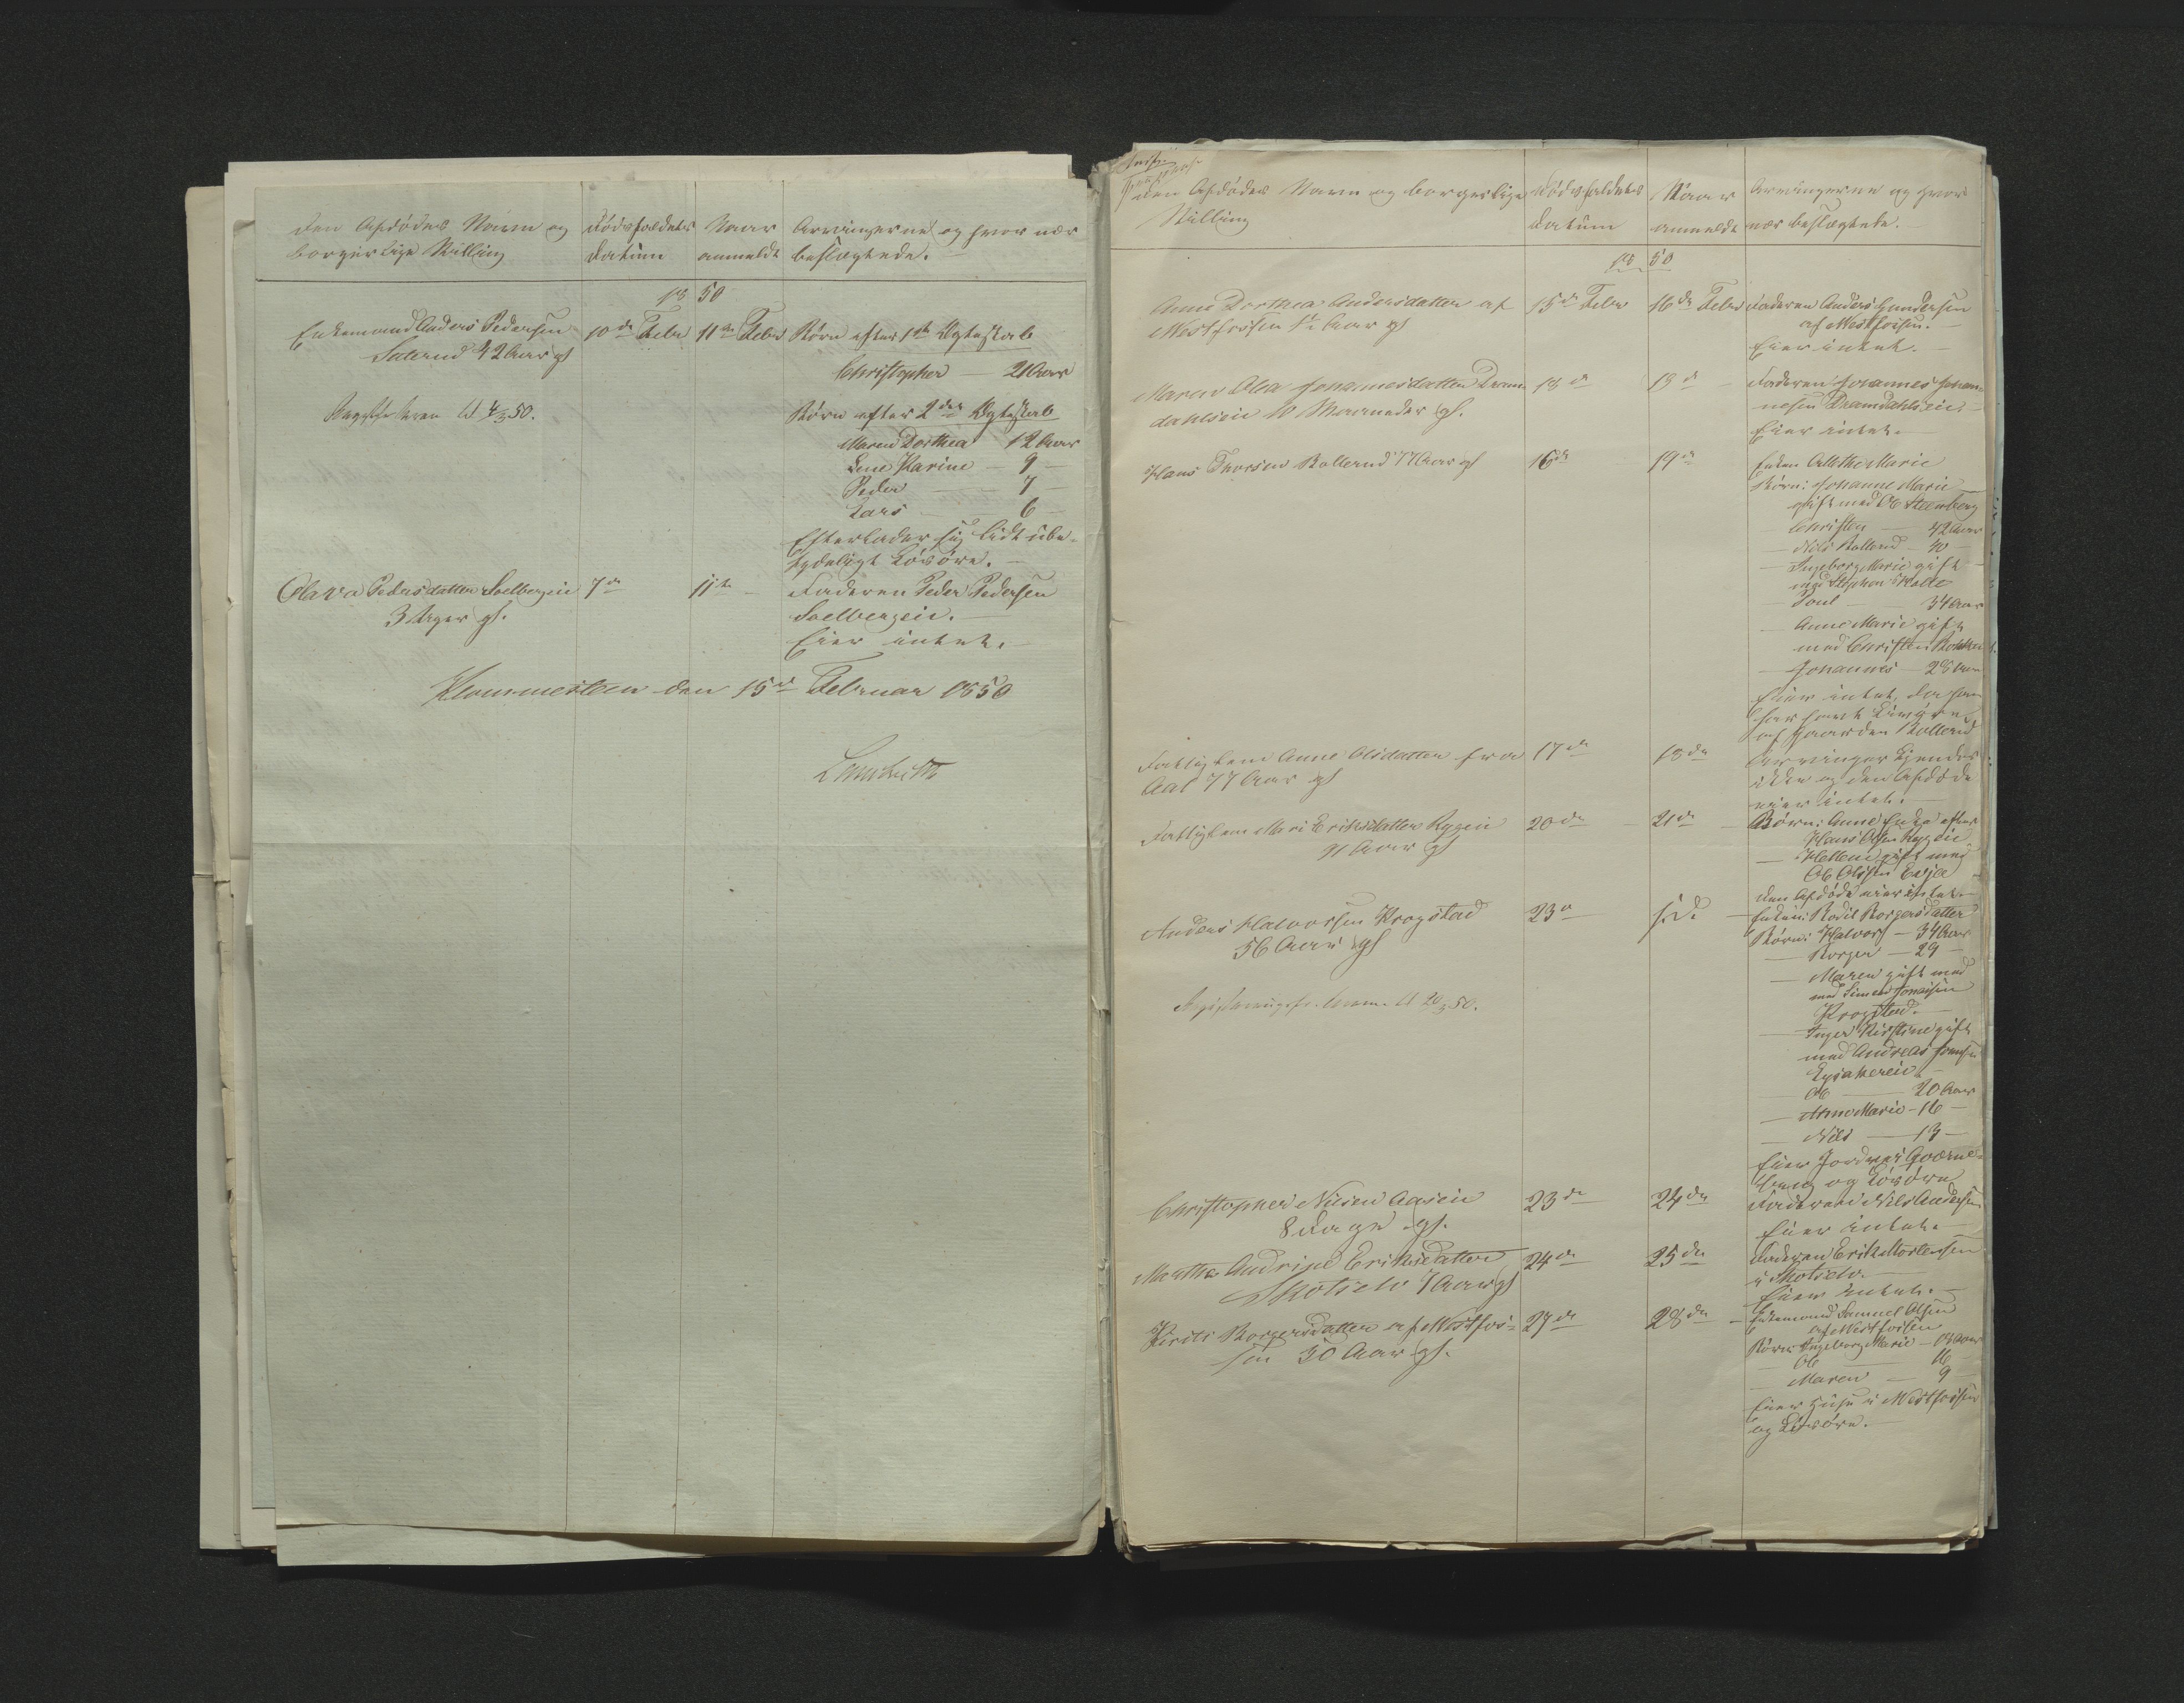 Den Afdødes Navn og
borgerlige Stilling
Dødsfaldets
Datum
Naar
anmeldt
Arvingerne og hvor nær
beslægtede.
18 50
Enkemand Anders Pedersen
42 Aar gl
10de Febr
11te Febr
Børn efter 1ste Ægteskab
Christopher — 21 Aar
Børn efter 2det Ægteskab
Maren Dorthea 12 Aar
Lene Karine — 9 —
Peder — 7 —
Lars — 6 —
Efterlader sig lidt ube-
tydeligt Løsøre.
4/3 50.
Olava Pedersdatter Solbergeie
3 Uger gl.
7de
11te
Faderen Peder Pedersen
Solbergeie.
Eier intet.
den 15de Februar 1850
Den Afdødes Navn og borgerlige
Stilling
Dødsfaldets
Datum
Naar
anmeldt
Arvingerne og hvor
nær beslægtede.
18 50
Anne Dorthea Andersdatter af
Westfossen 1/2 Aar gl
15de Febr
16de Febr
Faderen Anders Gundersen
af Westfossen.
Eier intet.
Maren Olea Johannesdatter Dram-
dahlseie 10 Maaneder gl.
18de
19de
Faderen Johannes Johan-
nesen Dramdahlseie
Eier intet.
Hans Thorsen Bollerud 77 Aar gl
16de
19de
Enken Marie
Børn: Johanne Marie
gift med Ole Steenberg
Christen — 42 Aar
Nils Bollerud — 40 —
Ingeborg Marie gift
med Stephen
Poul — 34 Aar
Anne Marie gift
med Christen
Johannes — 28 Aar
Eier intet, da han
har havt
af Gaarden Bollerud
Fattiglem Anne Olsdatter fra
Aas 77 Aar gl
17de
18de
Arvinger kjendes
ikke og den Afdøde
eier intet.
Fattiglem Mari Eriksdatter Rygeie
91 Aar gl
20de
21de
Børn: Anne Enke efter
Hans Olsen Rygeie
gift med
Ole Olsen Evje
Den Afdøde eier intet
Anders Halvorsen Krogstad
56 Aar gl
23de
s. D.
Enken: Bodil Borgersdatter
Børn: Halvor — 34 Aar
Borger — 29 —
Maren gift med
med Simen
Krogstad.
Inger Kirstine gift
med Andreas
Ole — 20 Aar
Anne Marie — 16 —
Nils — 13 —
Eier Jordvei
og Løsøre
20/3 50.
Christopher Nilsen Aaseie
8 Dage gl.
23de
24de
Faderen Nils Andersen
Eier intet.
Marthe Andrine Eriksdatter
Skotselv 1 Aar gl
24de
25de
Faderen Erik Mortensen
i Skotselv.
Eier intet.
Borgersdatter af Westfos-
sen 50 Aar gl.
27de
28de
Enkemand Samuel Olsen
af Westfossen
Børn: Ingeborg Marie
Ole — 16
Maren — 9
Eier Huse i Westfossen
og Løsøre.